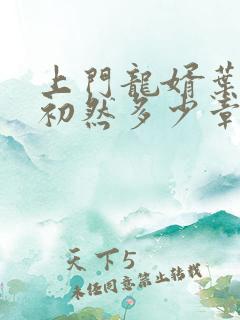 上門龍婿葉
初然多少章
天下5
未任同意禁止转载